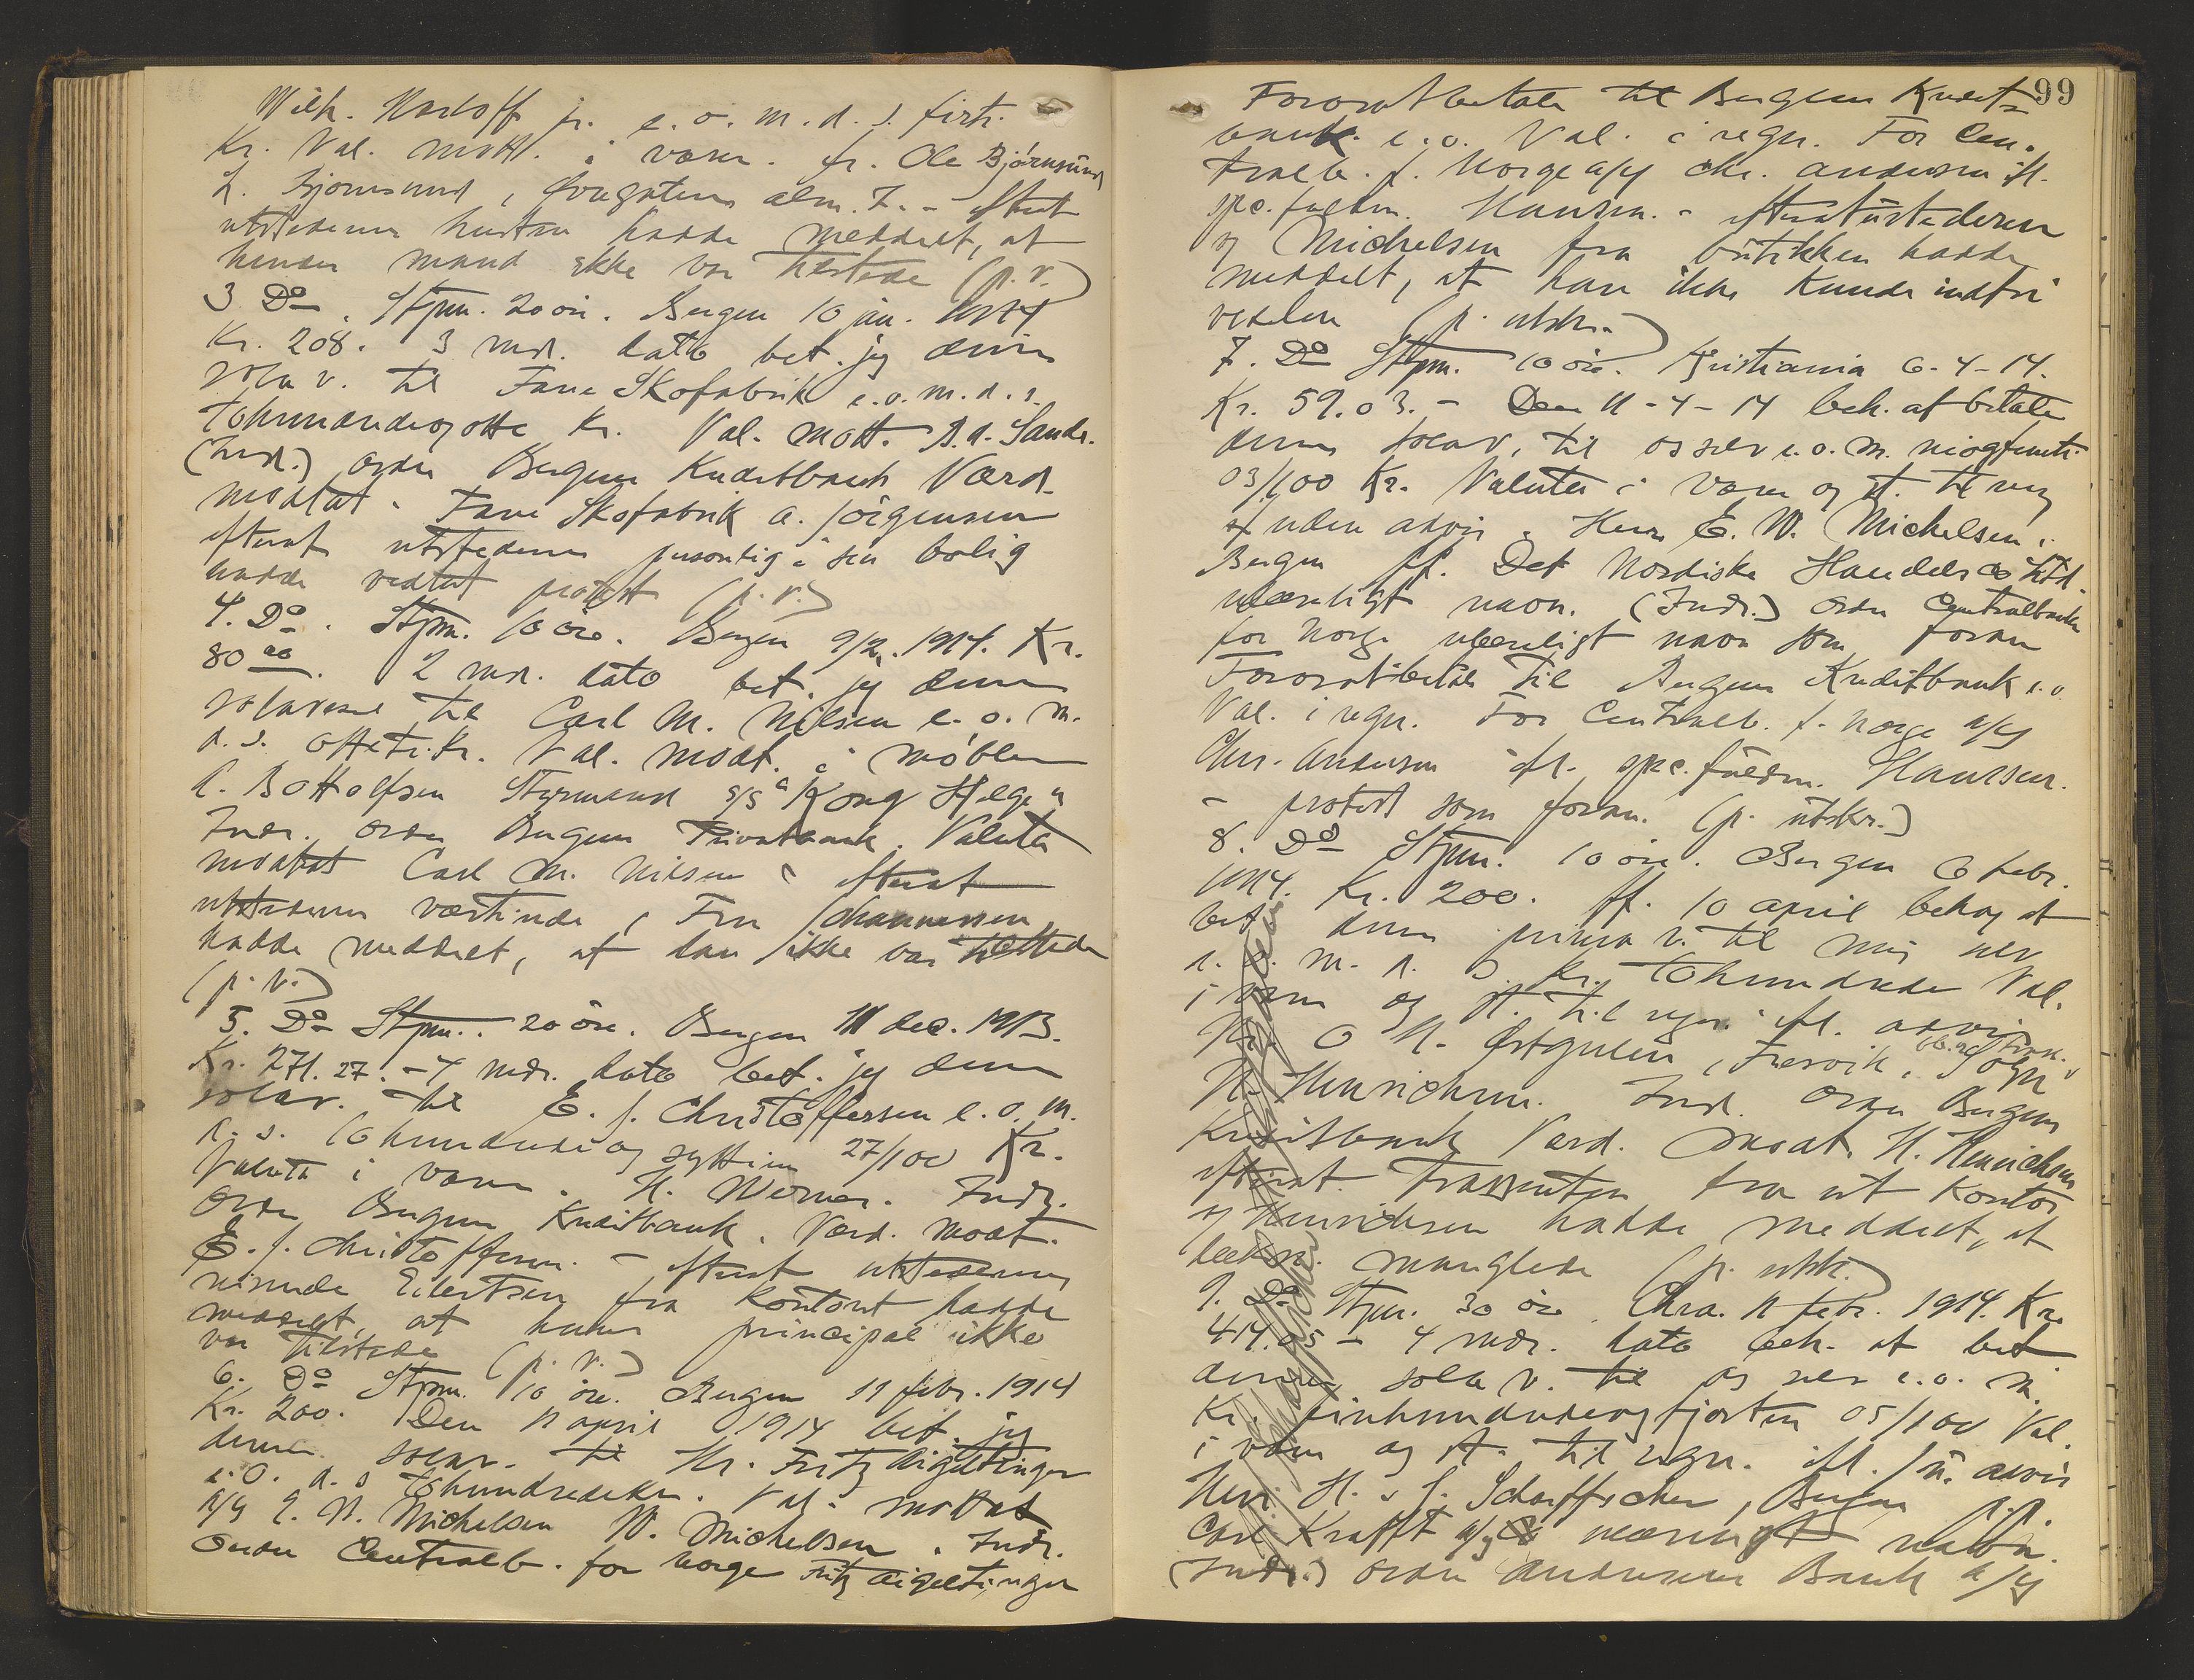 Wilh. Harloff jr. e. o. m. d. s. firti
Kr. Val. mott. i varer. fr. Ole Bjørnsund
L. Bjørnsund, alm. 7. - efterat
utstederens hustru hadde meddelt, at
hendes mand ikke var tilstede (p. v.)
3 Do. Stpm. 20 öre. Bergen 10 jan. 1914
Kr. 208. 3 mdr. dato bet. jeg denne
sola v. til Fane Skofabrik e. o. m. d. s.
tohundredeogotte Kr. Val. mott. A. Sandr.
(Ind.) ordre Bergens Kreditbank Værd.
modtat. Fane Skofabrik A. Jörgensen
efterat utstederen personlig i sin bolig
hadde vedtat protest (p. v.)
4. Do. Stpm. 10 öre. Bergen 9/2. 1914. Kr.
80 00. 2 mdr. dato bet. jeg denne
solavexel til Carl M. Nilsen e. o. m.
d. s. otteti Kr. Val. modt. i möbler
A. Bottolfsen Styrmand s/s "Kong Helge"
Indr. ordre Bergens Privatbank. Valuta
modtat Carl M. Nilsen - efterat
utstederens værtinde, Fru Johannessen
hadde meddelt, at han ikke var tilstede
(p. v.)
5. Do Stpm. 20 öre. Bergen 11 dec. 1913.
Kr. 271.27. - 4 mdr. dato bet. jeg denne
solav. til E. J. Christoffersen e. o. m.
d. s. tohundrede og sytti en 27/100 Kr.
Valuta i varer. H. Werner. Indr.
ordre Bergens Kreditbank. Værd. modt.
E. J. Christoffersen. - efterat utstederens
nisinde Eilertsen fra kontoret hadde
meddelt, at hans principal ikke
var tilstede (p. v.)
6. Do Stpm. 10 öre. Bergen 11 febr. 1914
Kr. 200. Den 11 april 1914 bet. jeg
denne solav. til Hr. Fritz Aigeltinger
e. o. d. s. tohundredekr. Val. mottat
a/s E. W. Michelsen W. Michelsen. Indr.
Ordre Centralb. for Norge Fritz Aigeltinger
99
Foranstbetale til Bergens Kredit-
bank. e. o. Val. i regn. For Cen-
tralb. f. Norge a/s Chr. Andersen ifl.
spec. fuldm. Hansen. - efterat utstederen
og Michelsen fra butikken hadde
meddelt, at han ikke kunde indfri
vexelen (p. utskr.)
7. Do Stpm. 10 öre. Kristiania 6-4-14.
Kr. 59.03. - Den 11-4-14 beh. at betale
denne solav. til os selv e. o. m. niogfemti
03/100 Kr. Valuta i varer og st. til regn
uden advis. Herr E. W. Michelsen i
Bergen pp. Det Nordiske Handels Co Ltd.
ulæseligt navn. (Indr.) ordre Centralbanken
for Norge ulæseligt navn som foran
Foranstbetale til Bergens Kreditbank e. o.
Val. i regn. For Centralb. f. Norge a/s
Chr. Andersen ifl. spec. fuldm. Hanssen.
- protest som foran. (p. utskr.)
8. Do Stpm. 10 öre. Bergen 6 febr.
1914. Kr. 200. pp. 10 april behag at
bet. denne prima v. til mig selv
e. o. m. d. s. Kr. tohundrede Val.
i varer og st. til regn. ifl. advis
Hr. O. N. Östgulen, Fresvik, Sogn
H. Henrichsen. Ind. Ordre Bergens
Kreditbank Værd. modt. H. Henrichsen
efterat trassenten fra sit kontor
og Henrichsen hadde meddelt, at
dekn. manglede (p. utskr.)
9. Do Stpm. 30 öre. Chra. 11 febr. 1914. Kr.
414.05 - 4 mdr. dato beh. at bet
denne sola v. til os selv e. o. m.
Kr. firehundredeogfjorten 05/100 Val.
i varer og st. til regn. ifl. /u. advis
Herr. H. & J. Scharffscher, Bergen p.p.
Carl Krafft a/s ulæseligt navn.
(Indr.) ordre Andresens Bank a/s